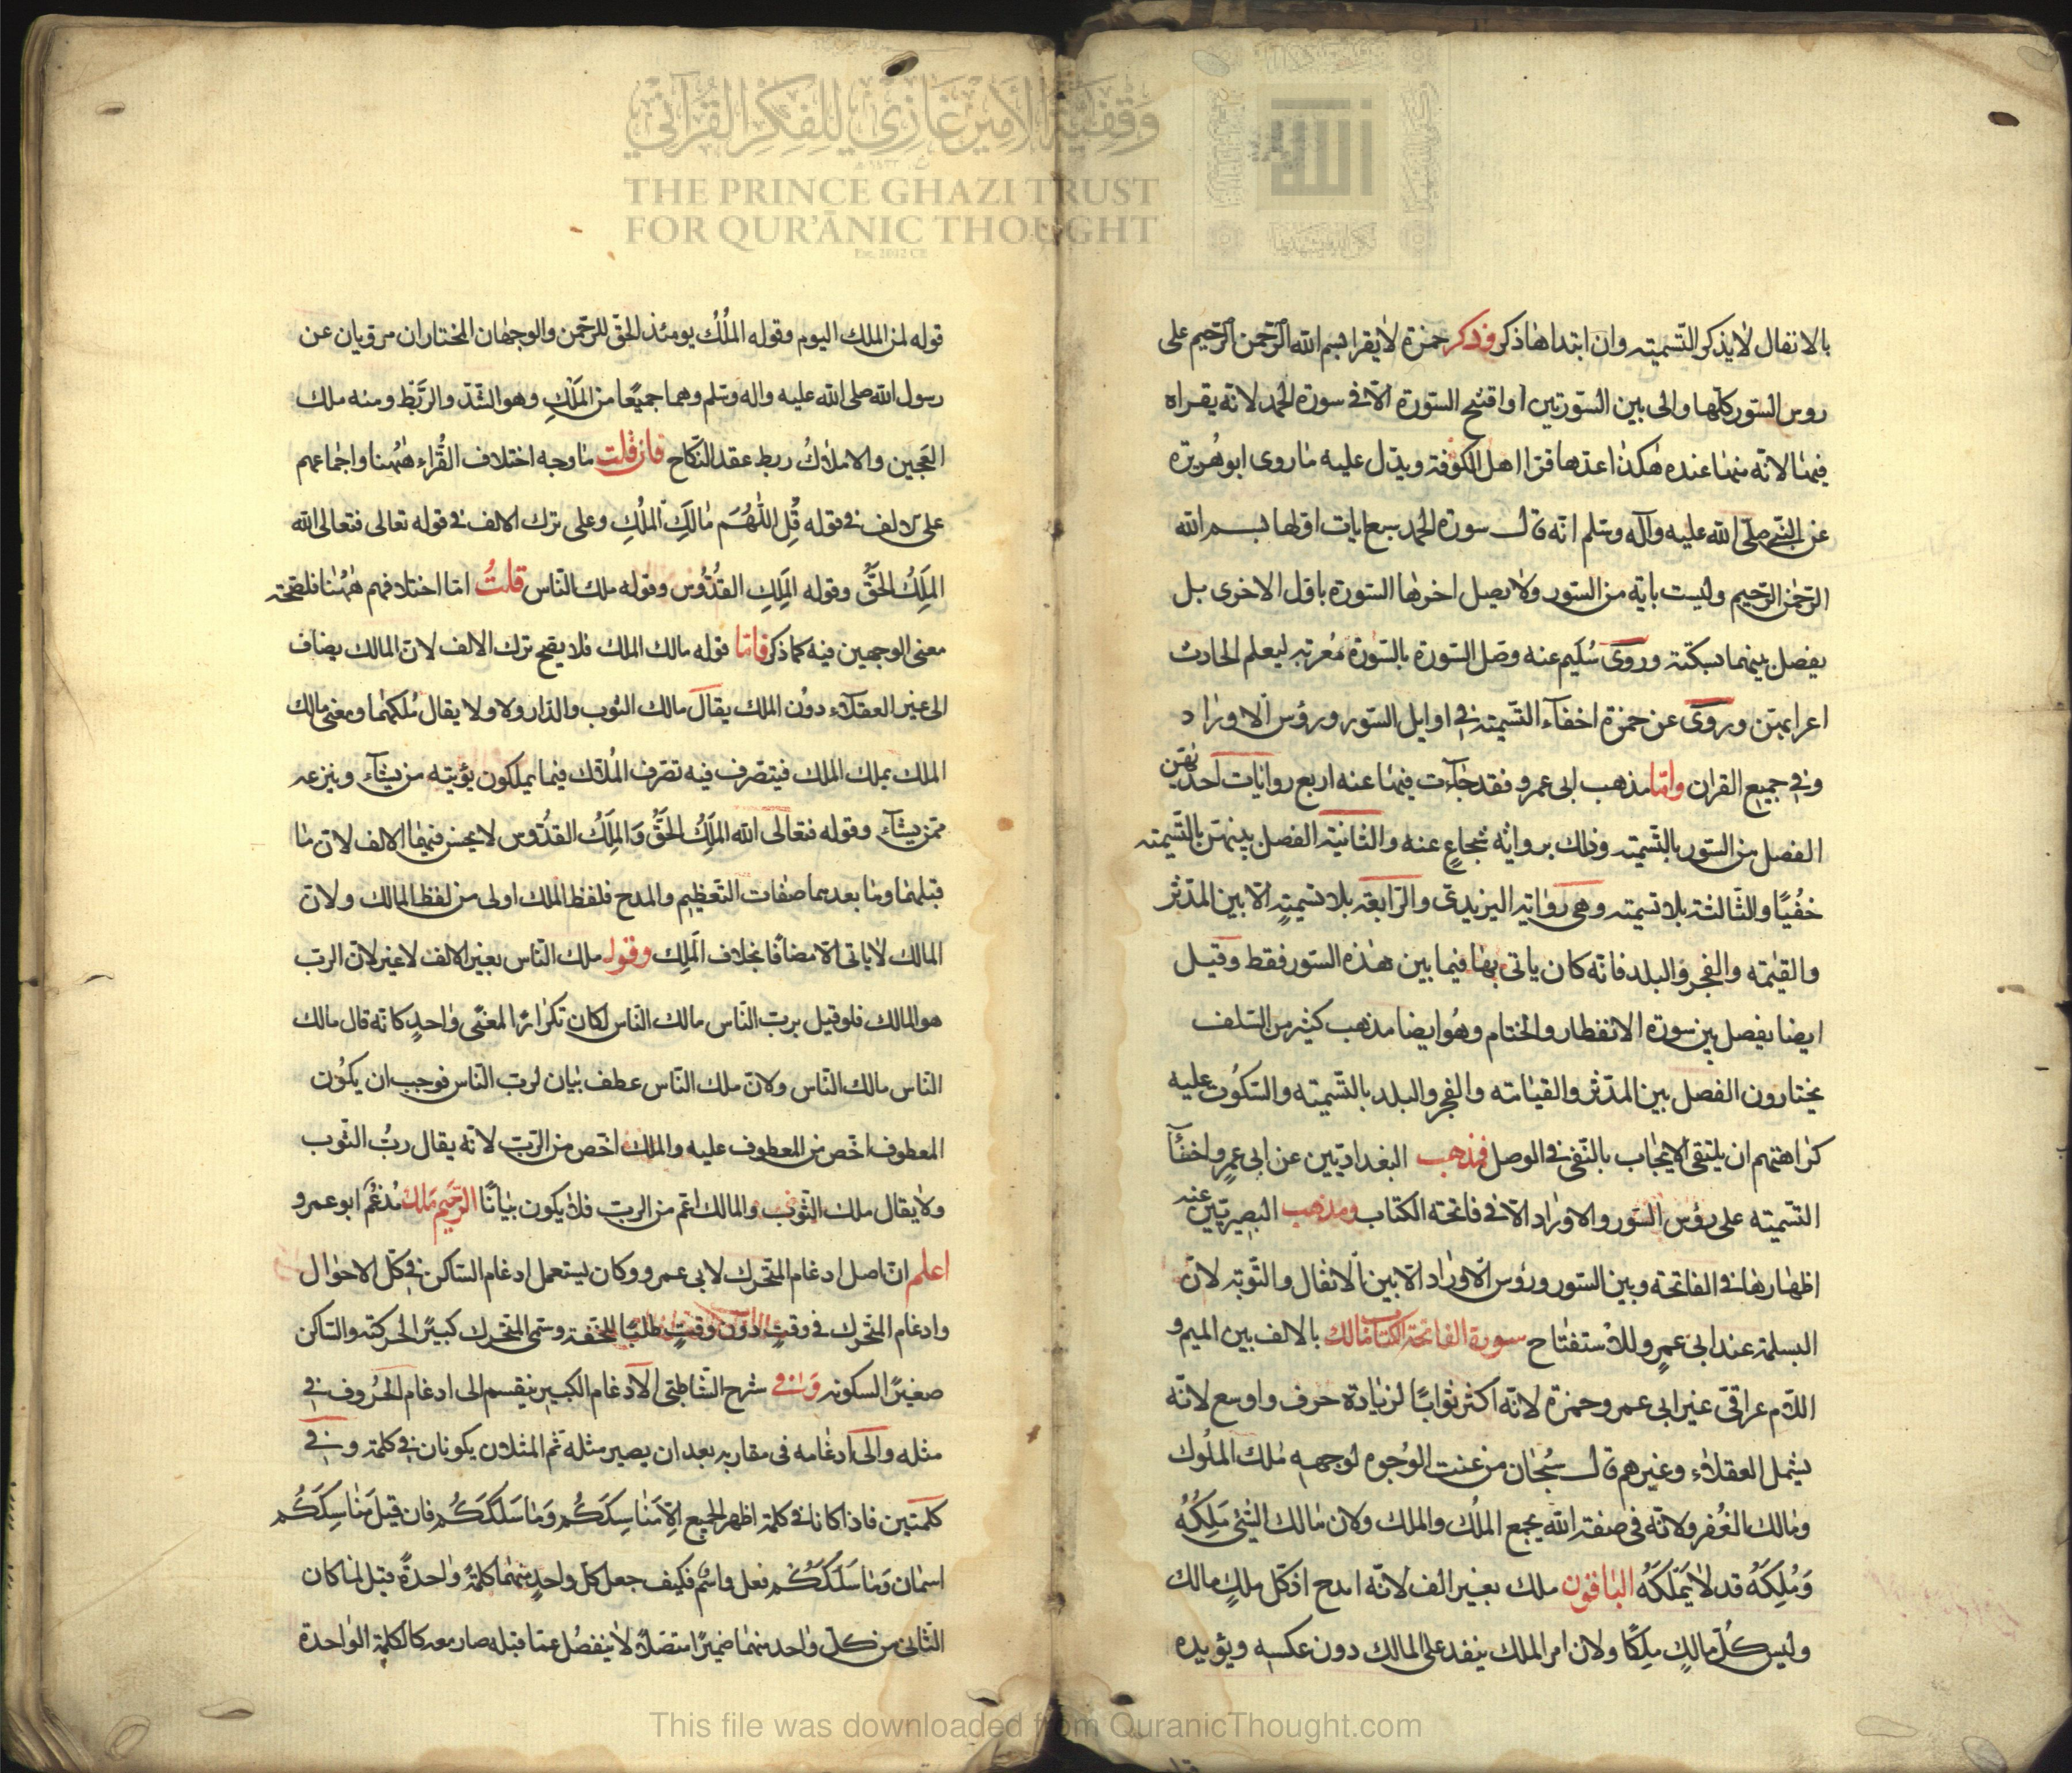 وقفية الأمير غازي للفكر القرآني
THE PRINCE GHAZI TRUST
FOR QUR'ĀNIC THOUGHT
Est. 2012 CE
بالانفال لا يذكر التسمية وان ابتداها ذكر وذكر حمزة لا يقرا بسم الله الرحمن الرحيم على
روس السور كلها والى بين السورتين او افتتح السورة الا في سورة الحمد لانه يقراه
فيها لانه منها عنده هكذا عدها قرا اهل الكوفة ويدل عليه ما روى ابو هريرة
عن النبي صلى الله عليه وآله وسلم انه قال سورة الحمد سبع ايات اولها بسم الله
الرحمن الرحيم وليست باية من السور ولا يصل اخرها السورة باول الاخرى بل
يفصل بينهما بسكتة وروى سليم عنه وصل السورة بالسورة معربة ليعلم الحادث
اعرابهن وروى عن حمزة اخفاء التسمية في اوايل السور ورؤس الاوراد
وفي جميع القران واما مذهب ابى عمرو فقد جاءت فيها عنه اربع روايات احديهن
الفصل من السور بالتسمية وذلك برواية شجاع عنه والثانية الفصل بينهن بالتسمية
خفيا والثالثة بلا تسمية وهى رواية اليزيدى والرابعة بلا تسمية الا بين المدثر
والقيمة والفجر والبلد فانه كان ياتى بها فيما بين هذه السور فقط وقيل
ايضا يفصل بين سورة الانفطار والختام وهو ايضا مذهب كثير من السلف
يختارون الفصل بين المدثر والقيامة والفجر والبلد بالتسمية والسكوت عليه
كراهتهم ان يلتقى الايجاب بالنفى في الوصل فمذهب البغداديين عن ابى عمرو اخفآ
التسمية على رؤس السور والاوراد الا في فاتحة الكتاب ومذهب البصريين عنه
اظهارها في الفاتحة وبين السور ورؤس الاوراد الا بين الانفال والتوبة لان
البسملة عند ابى عمرو للاستفتاح سورة الفاتحة الكتاب مالك بالالف بين الميم و
اللام عراقى غير ابى عمرو وحمزة لانه اكثر ثوابا لزيادة حرف واوسع لانه
يشمل العقلاء وغيرهم قال سبحان من عنت الوجوه لوجهه ملك الملوك
ومالك الغفر ولانه فى صفة الله يجمع الملك والملك ولان مالك الشئ ملكه
وملكه قد لا يملكه الباقون ملك بغير الف لانه امدح اذ كل ملك مالك
وليس كل مالك ملكا ولان امر الملك ينفذ على المالك دون عكسه ويؤيده
قوله لمن الملك اليوم وقوله الملك يومئذ الحق للرحمن والوجهان المختاران مرويان عن
رسول الله صلى الله عليه واله وسلم وهما جميعا من الملك وهو الشد والربط ومنه ملك
العجين والاملاك ربط عقد النكاح فان قلت ما وجه اختلاف القراء ههنا واجماعهم
على الالف في قوله قل اللهم مالك الملك وعلى ترك الالف في قوله تعالى فتعالى الله
الملك الحق وقوله الملك القدوس وقوله ملك الناس قلت اما اختلافهم ههنا فلصحة
معنى الوجهين فيه كما ذكر فاما قوله مالك الملك فلا يقح ترك الالف لان المالك يضاف
الى غير العقلاء دون الملك يقال مالك الثوب والدار ولا يقال ملكهما ومعنى مالك
الملك يملك الملك فيتصرف فيه تصرف الملاك فيما يملكون يؤتيه من يشآء وينزعه
ممن يشآء وقوله فتعالى الله الملك الحق والملك القدوس لا يحسن فيها الالف لان ما
قبلهما وما بعدهما صفات التعظيم والمدح فلفظ الملك اولى من لفظ المالك ولان
المالك لا ياتى الا مضافا بخلاف الملك وقوله ملك الناس بغير الالف لا غير لان الرب
هو المالك فلو قيل برب الناس مالك الناس لكان تكرارا لمعنى واحد كانه قال مالك
الناس مالك الناس ولان ملك الناس عطف بيان لرب الناس فوجب ان يكون
المعطوف اخص من المعطوف عليه والملك اخص من الرب لانه يقال رب الثوب
ولا يقال ملك الثوب والمالك اعم من الرب فلا يكون بيانا الرحيم ملك مدغم ابو عمرو
اعلم ان اصل ادغام المتحرك لابى عمرو وكان يستعمل ادغام الساكن في كل الاحوال
وادغام المتحرك في وقت دون وقت طلبا للخفة وسمى المتحرك كبيرا لحركته والساكن
صغيرا لسكونه وفي شرح الشاطبى الادغام الكبير ينقسم الى ادغام الحروف في
مثله والى ادغامه فى مقاربه بعد ان يصير مثله ثم المثلان يكونان في كلمة وفي
كلمتين فاذا كانا في كلمة اظهر الجميع الا مناسككم وما سلككم فان قيل مناسككم
اسمان وما سلككم فعل واسم فكيف جعل كل واحد منهما كلمة واحدة قيل لما كان
الثانى من كل واحد منهما ضميرا متصلا لا ينفصل عما قبله صار معه كالكلمة الواحدة
This file was downloaded from QuranicThought.com